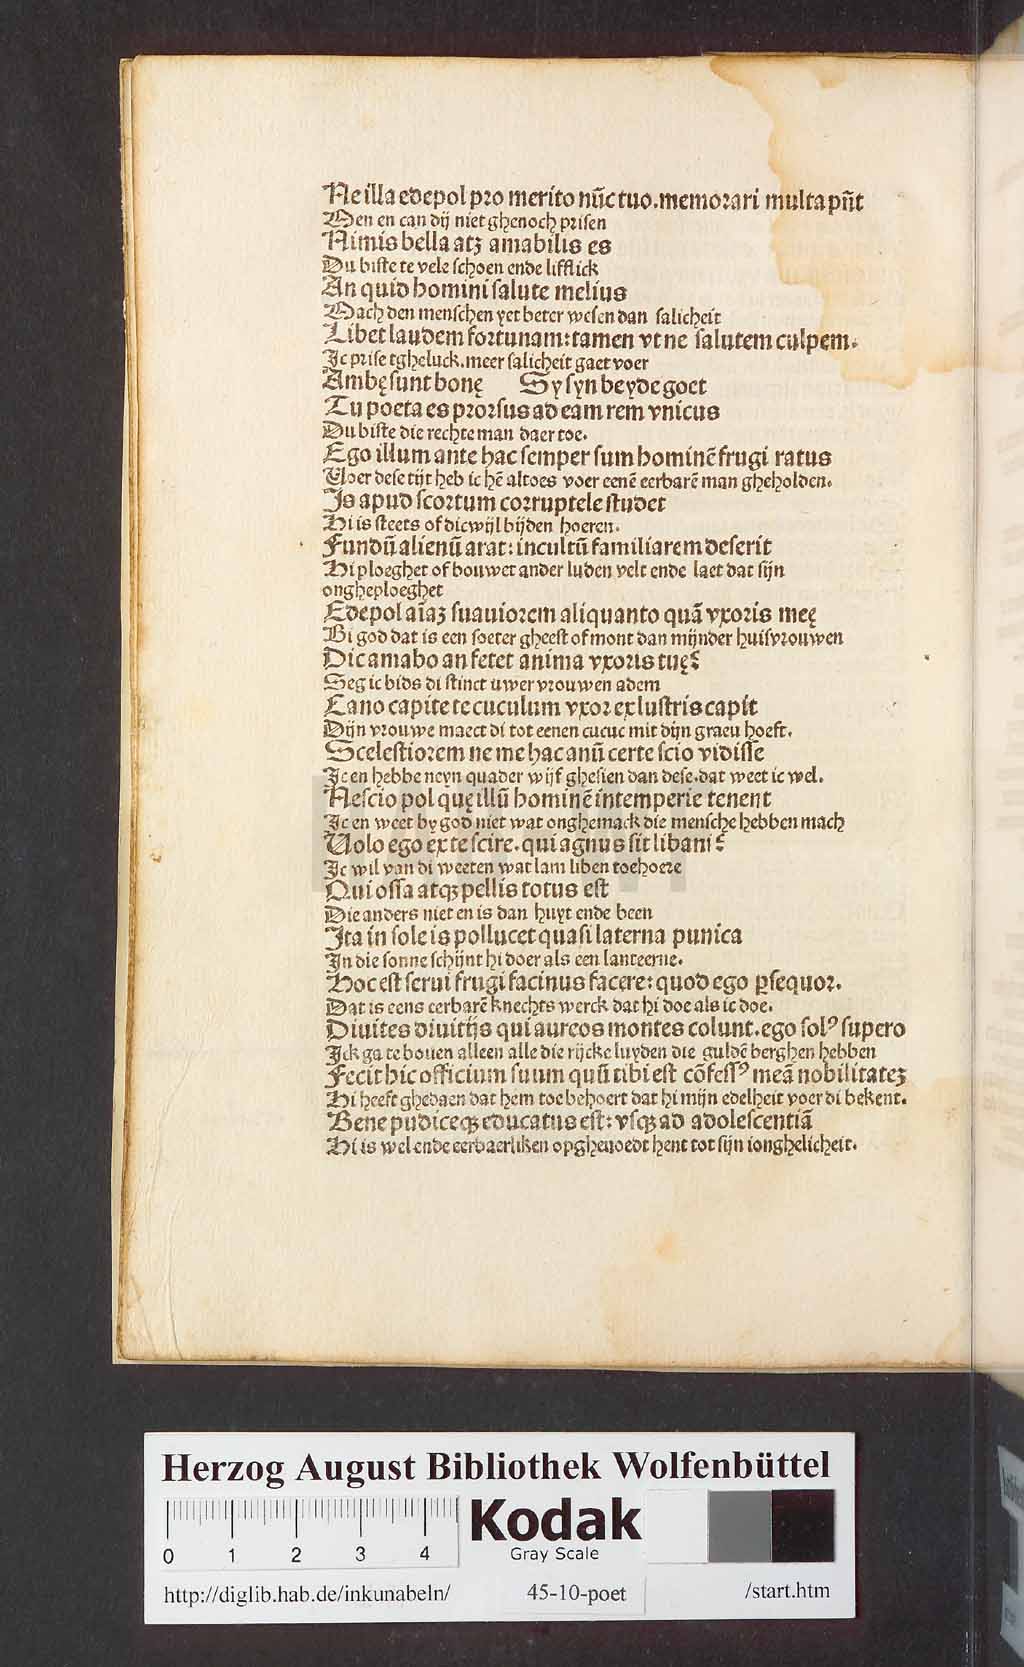 Ne illa edepol pro merito nūc tuo.memorari multa pn̄t
Men en can dij niet ghenoch prisen
Nimis bella atꝫ amabilis es
Du biste te vele schoen ende lifflick
An quid homini salute melius
Mach den menschen yet beter wesen dan salicheit
Libet laudem fortunam:tamen vt ne salutem culpem.
Ic prise tgheluck.meer salicheit gaet voer
Ambę sunt bonę Sy syn beyde goet
Tu poeta es prorsus ad eam rem vnicus
Du biste die rechte man daer toe.
Ego illum ante hac semper sum hominē frugi ratus
Voer dese tijt heb ic hē altoes voer eenē eerbarē man gheholden.
Is apud scortum corruptele studet
Hi is steets of dicwijl bijden hoeren.
Fundū alienū arat:incultū familiarem deserit
Hi ploeghet of bouwet ander luden velt ende laet dat sijn
ongheploeghet
Edepol aīaꝫ suauiorem aliquanto quā vxoris meę
Bi god dat is een soeter gheest of mont dan mijnder huisvrouwen
Dic amabo an fetet anima vxoris tuę?
Seg ic bids di stinct uwer vrouwen adem
Cano capite te cuculum vxor ex lustris capit
Dijn vrouwe maect di tot eenen cucuc mit dijn graeu hoeft.
Scelestiorem ne me hac anū certe scio vidisse
Ic en hebbe neyn quader wijf ghesien dan dese.dat weet ic wel.
Nescio pol quę illū hominē intemperie tenent
Ic en weet by god niet wat onghemack die mensche hebben mach
Uolo ego ex te scire.qui agnus sit libani?
Ic wil van di weeten wat lam liben toehoere
Qui ossa atqꝫ pellis totus est
Die anders niet en is dan huyt ende been
Ita in sole is pollucet quasi laterna punica
In die sonne schijnt hi doer als een lanteerne.
Hoc est serui frugi facinus facere:quod ego ꝑsequor.
Dat is eens eerbarē knechts werck dat hi doe als ic doe.
Diuites diuitijs qui aureos montes colunt.ego solꝰ supero
Ick ga te bouen alleen alle die rijcke luyden die guldē berghen hebben
Fecit hic officium suum quū tibi est cōfessꝰ meā nobilitateꝫ
Hi heeft ghedaen dat hem toe behoert dat hi mijn edelheit voer di bekent.
Bene pudiceqꝫ educatus est:vsqꝫ ad adolescentiā
Hi is wel ende eerbaerliken opgheuoedt hent tot sijn ionghelicheit.
Herzog August Bibliothek Wolfenbüttel
0 1 2 3 4
Kodak
Gray Scale
http://diglib.hab.de/inkunabeln/ 45-10-poet /start.htm